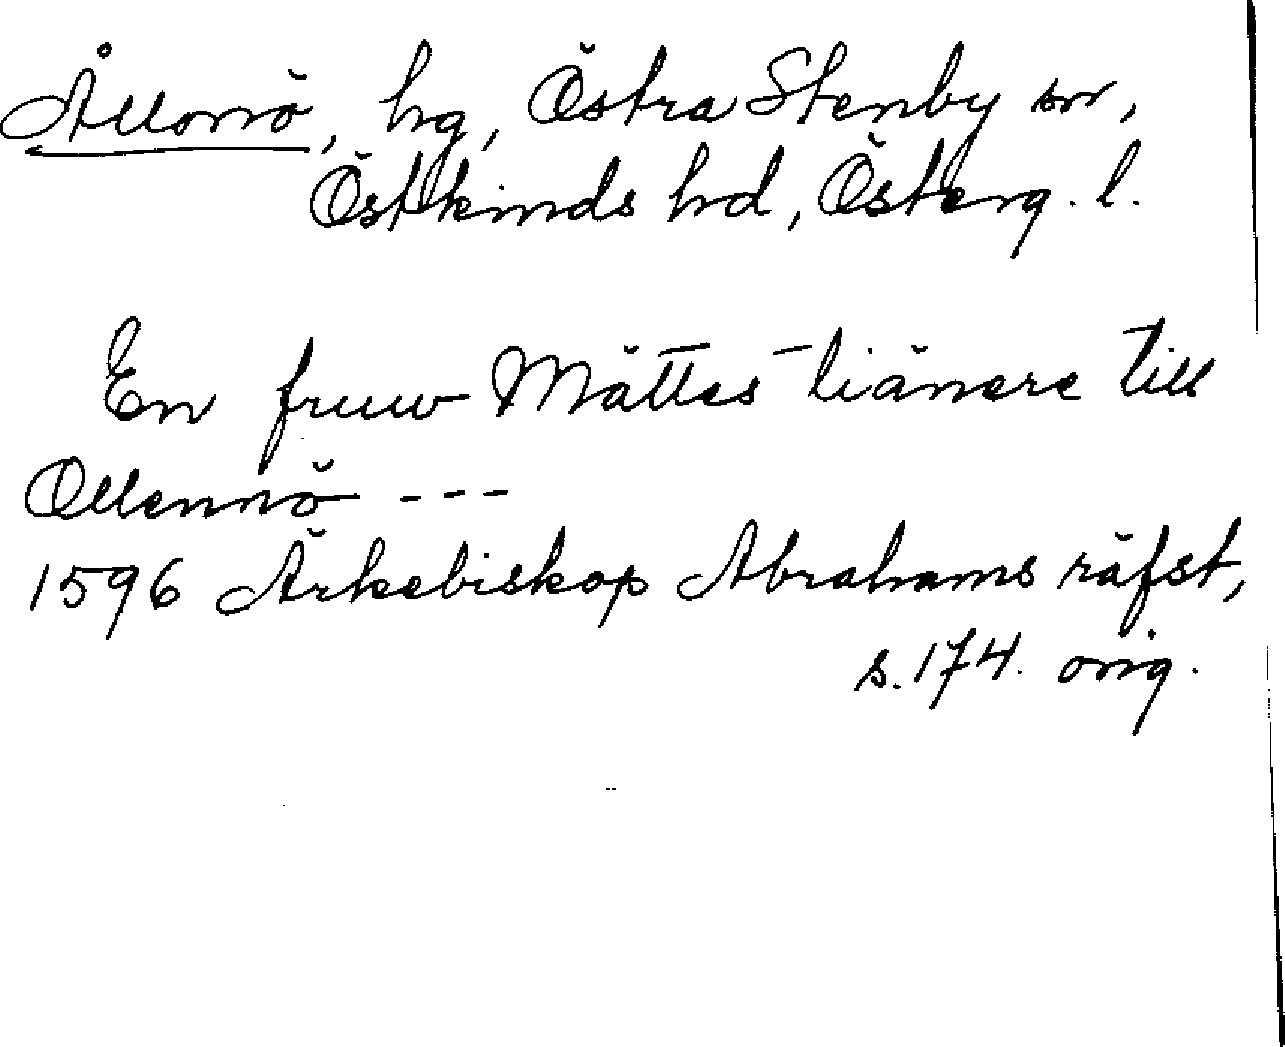 Ållonö, hg, Östra Stenby sn,
Östkinds hd, Österg. l.
En fruw Mättes tiänere till
Ollennö ---
1596 Ärkebiskop Abrahams räfst,
s. 174. orig.